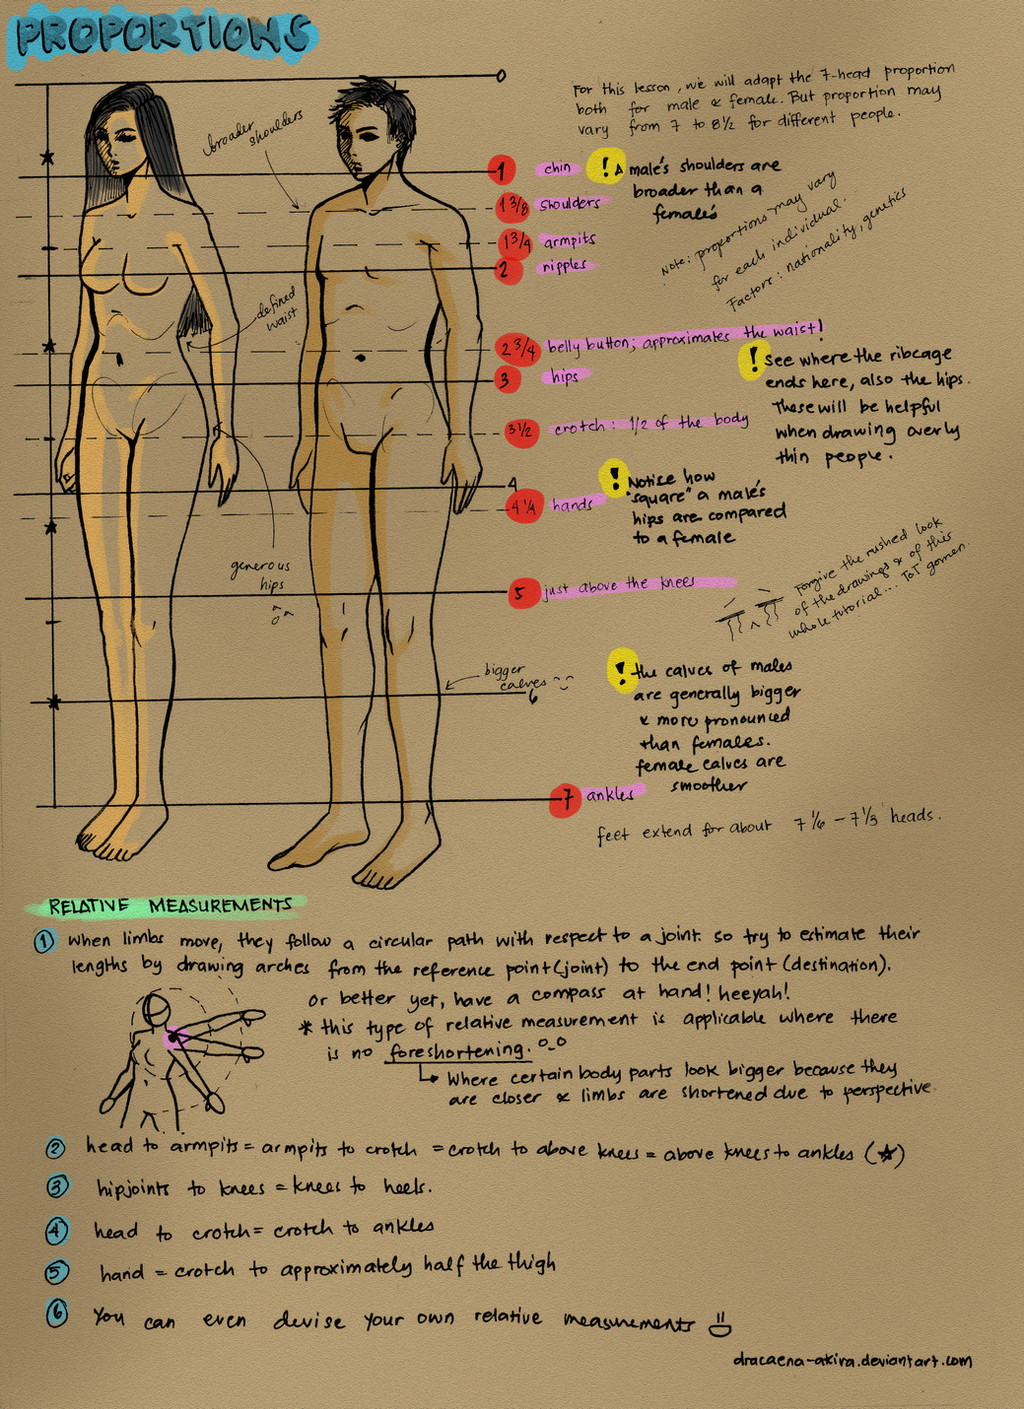 PROPORTIONS
0
For this lesson, we will adapt the 7-head proportion
both for male & female. But proportion may
vary from 7 to 8½ for different people.
broader
shoulders
1 chin
! A male's shoulders are
broader than a
female's
1 3/8 shoulders
1 3/4 armpits
2 nipples
Note: proportions may vary
for each individual.
Factors: nationality, genetics
defined
waist
2 3/4 belly button; approximates the waist!
3 hips
! See where the ribcage
ends here, also the hips.
These will be helpful
when drawing overly
thin people.
3 1/2 crotch: 1/2 of the body
4
! Notice how
"square" a male's
hips are compared
to a female
4 1/4 hands
generous
hips
5 just above the knees
Forgive the rushed look
of the drawings & of this
whole tutorial... ToT gomen.
bigger
calves
6
! the calves of males
are generally bigger
& more pronounced
than females.
female calves are
smoother
7 ankles
feet extend for about 7 1/6 - 7 1/3 heads.
RELATIVE MEASUREMENTS
1 when limbs move, they follow a circular path with respect to a joint. so try to estimate their
lengths by drawing arches from the reference point (joint) to the end point (destination).
or better yet, have a compass at hand! heeyah!
* this type of relative measurement is applicable where there
is no foreshortening. o_o
Where certain body parts look bigger because they
are closer & limbs are shortened due to perspective.
2 head to armpits = armpits to crotch = crotch to above knees = above knees to ankles (★)
3 hipjoints to knees = knees to heels.
4 head to crotch = crotch to ankles
5 hand = crotch to approximately half the thigh
6 You can even devise your own relative measurements
dracaena-akira.deviantart.com